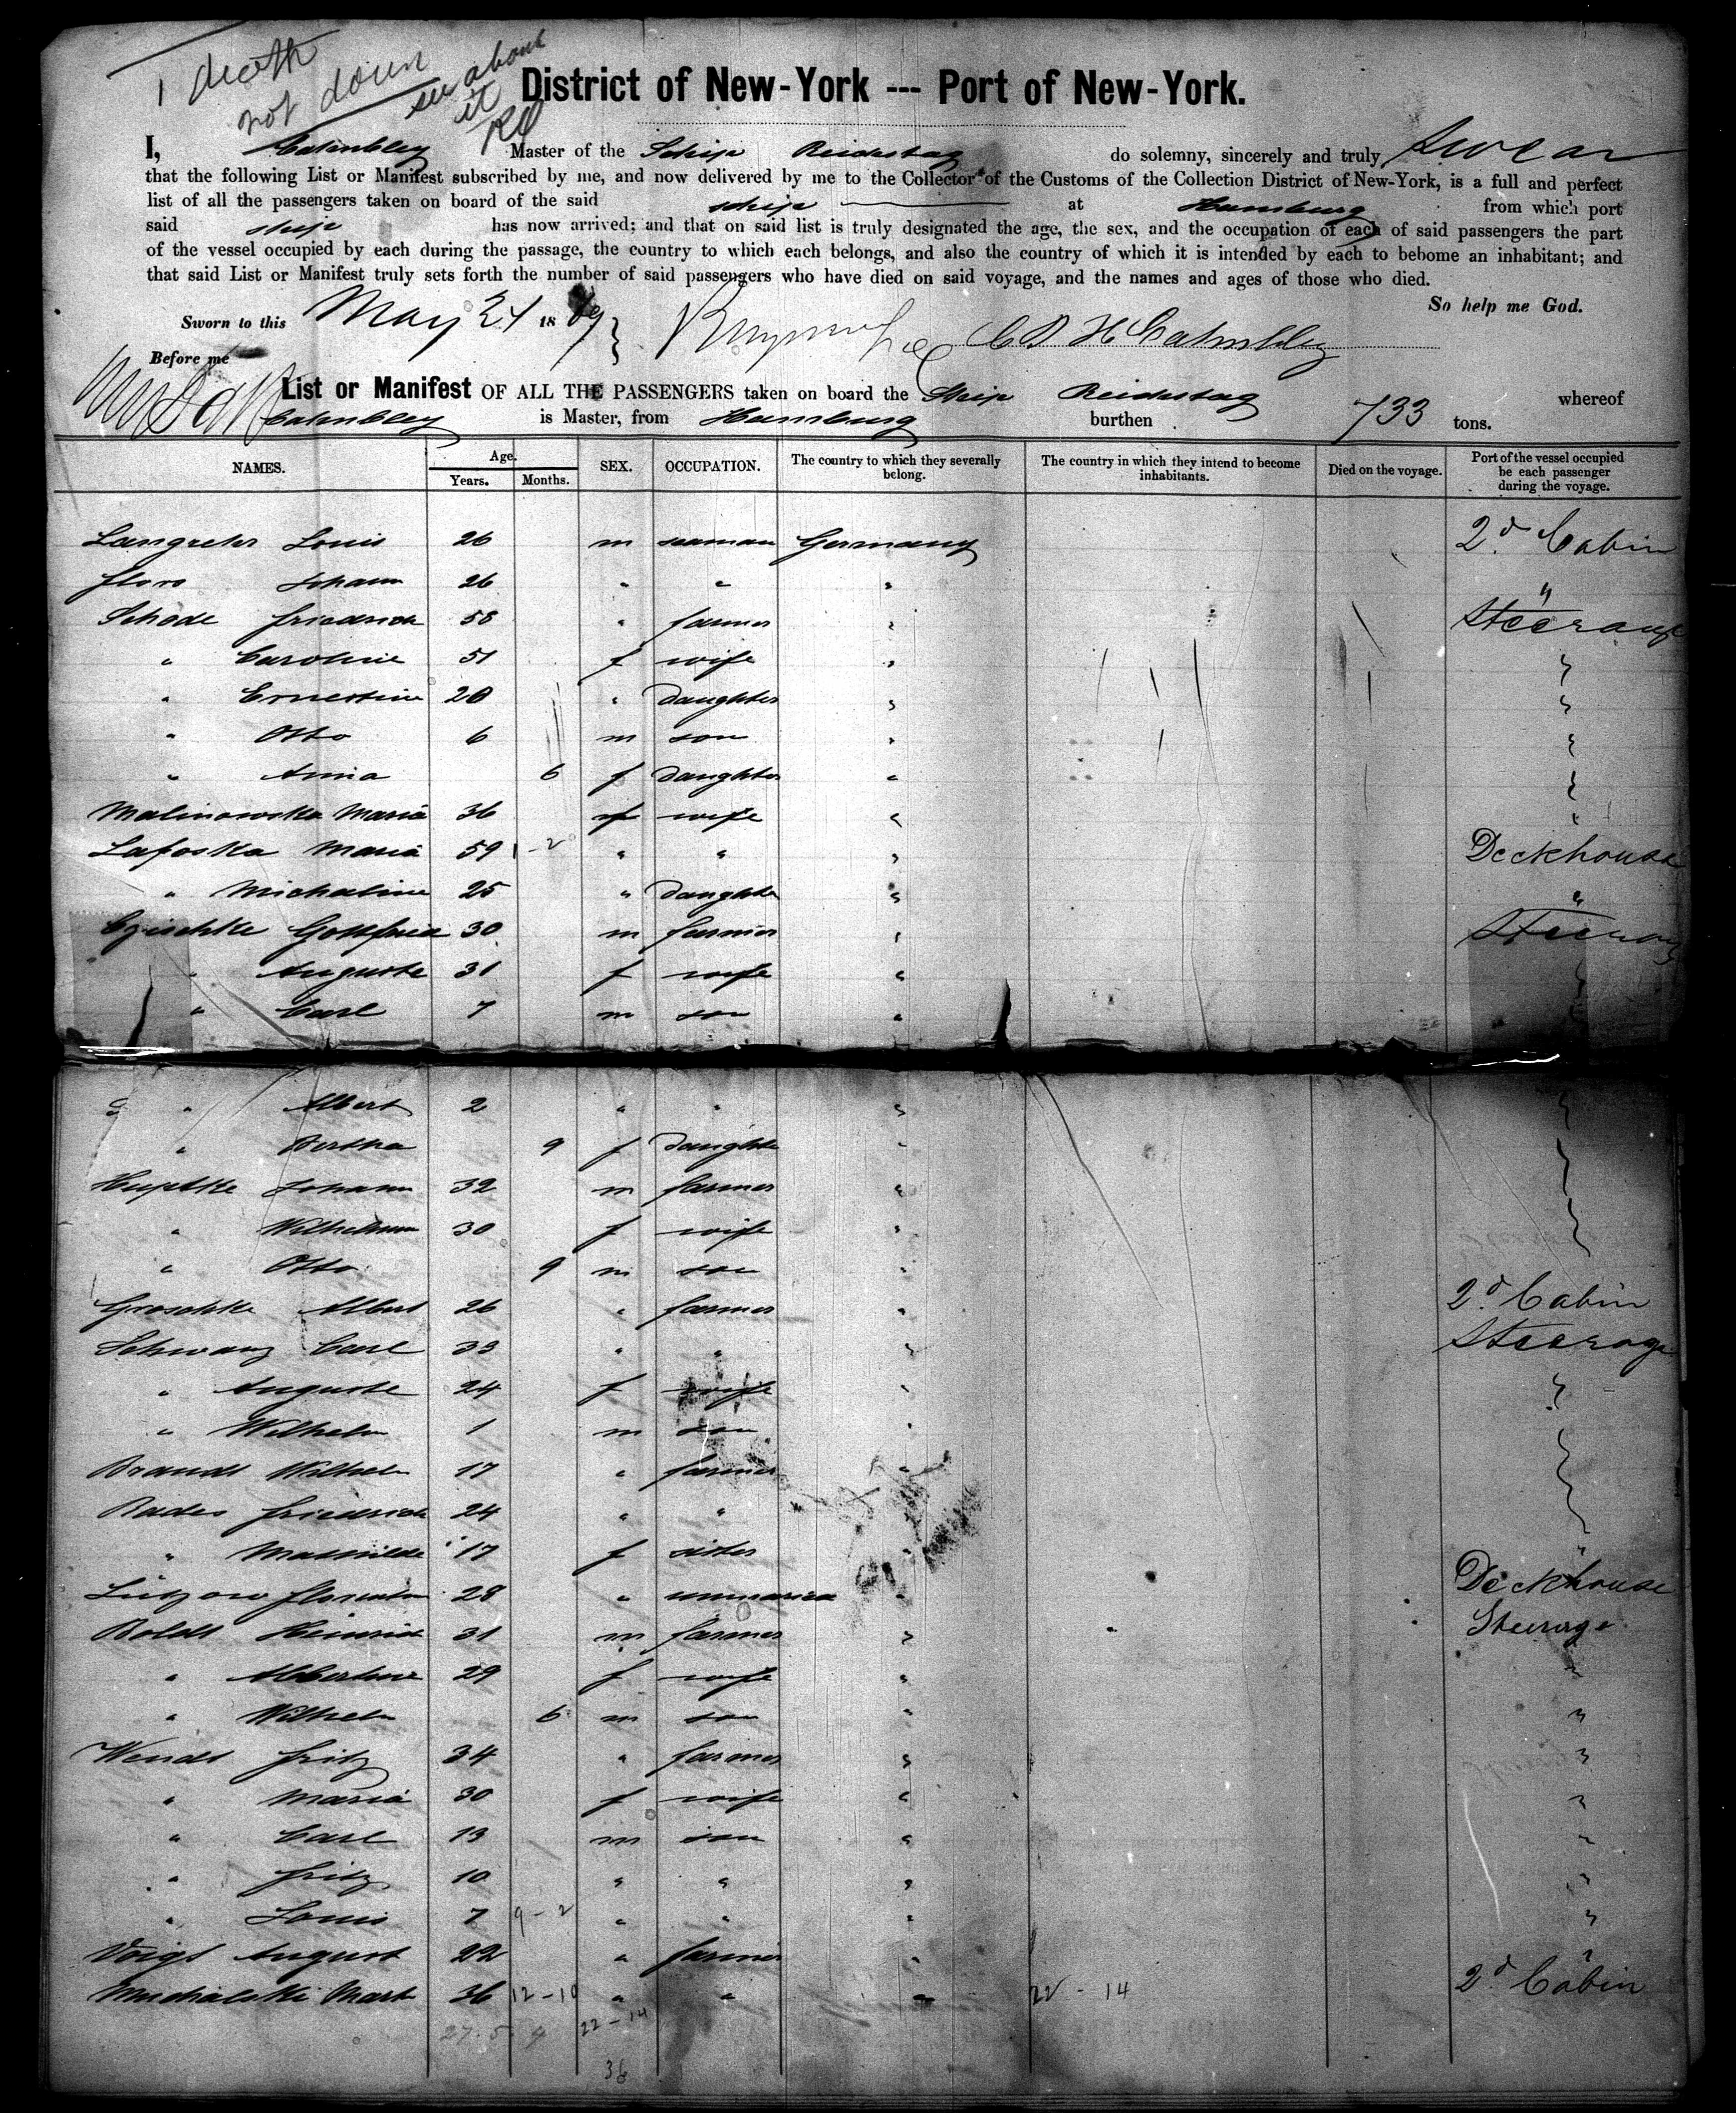 1 death
not down
see about
it
District of New-York --- Port of New-York.
I, Catmbley Master of the Ship Reichstag do solemny, sincerely and truly swear
that the following List or Manifest subscribed by me, and now delivered by me to the Collector of the Customs of the Collection District of New-York, is a full and perfect
list of all the passengers taken on board of the said ship at Hamburg from which port
said ship has now arrived; and that on said list is truly designated the age, the sex, and the occupation of each of said passengers the part
of the vessel occupied by each during the passage, the country to which each belongs, and also the country of which it is intended by each to bebome an inhabitant; and
that said List or Manifest truly sets forth the number of said passengers who have died on said voyage, and the names and ages of those who died.
So help me God.
Sworn to this May 24 18
Before me
List or Manifest OF ALL THE PASSENGERS taken on board the Ship Reichstag whereof
Catmbley is Master, from Hamburg burthen 733 tons.
NAMES. Age. Years. Months. SEX. OCCUPATION. The country to which they severally belong. The country in which they intend to become inhabitants. Died on the voyage. Port of the vessel occupied be each passenger during the voyage.
Langrehr Louis 26 m seaman Germany 2d Cabin
Johann 26 " " " "
Schode Friedrich 58 " farmer " Steerage
" Caroline 51 f wife " "
" Ernestine 20 " daughter " "
" Otto 6 m son " "
" Anna 6 f daughter " "
Malinowska Maria 36 f wife " "
Lafoska Maria 59 1-2 " " " Deckhouse
" Michaline 25 " daughter " "
Czischke Gottfried 30 m farmer " Steerage
" Auguste 31 f wife " "
" Carl 7 m son " "
" Albert 2 " " " "
" Bertha 9 f daughter "
Huptke Johann 32 m farmer "
" Wilhelmine 30 f wife "
" Otto 9 m son "
Groschke Albert 26 " farmer " 2d Cabin
Schwanz Carl 33 " " " Steerage
" Auguste 24 f wife " "
" Wilhelm 1 m son "
Brandt Wilhelm 17 " farmer "
Rades Friedrich 24 " "
" Mathilde 17 f sister " "
Lützow 28 " unmarried " Deckhouse
Boldt Heinrich 31 m farmer " Steerage
" Albertine 29 f wife " "
" Wilhelm 6 m son " "
Wendt Fritz 34 " farmer " "
" Maria 30 f wife " "
" Carl 13 m son " "
" Fritz 10 " " " "
" Louis 7 9-2 " " " "
Voigt August 22 " farmer " "
Michalski Mart 36 12-10 " " " 22-14 2d Cabin
27.5.9 22-14
36